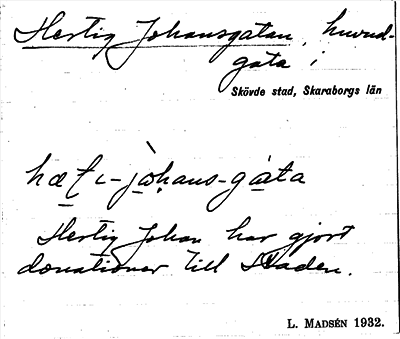 Hertig Johansgatan, huvud-
gata i
Skövde stad, Skaraborgs län
hæʈɩ-jòhans-gàta
Hertig Johan har gjort
donationer till staden.
L. MADSÉN 1932.